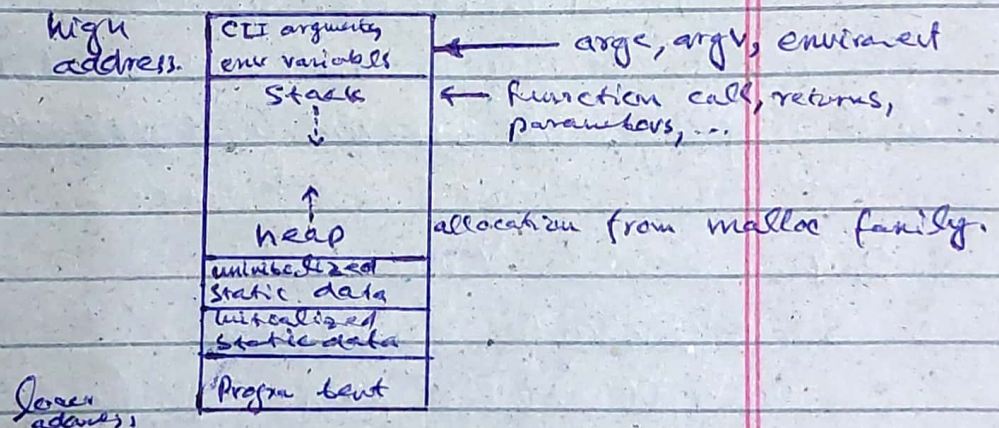 high
address.
CLI arguments,
env variables
argc, argv, enviroment
Stack
function call, returns,
parameters, ...
heap
allocation from malloc family.
uninitialized
static data
initialized
static data
Program text
lower
address,